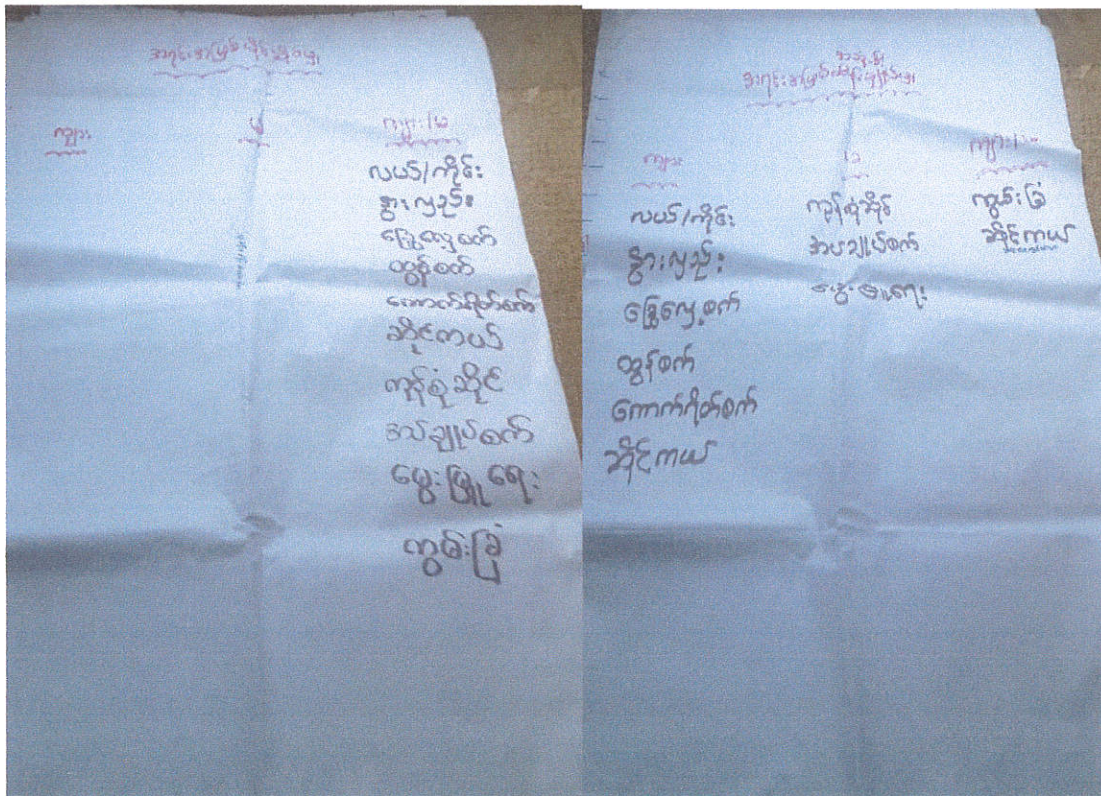 အရင်းအမြစ်ပိုင်ဆိုင်မှု
ကျား
မ
ကျား/မ
လယ်/ကိုင်း
နွားလှည်း
ခြွေလှေ့စက်
ထွန်စက်
ကောက်ရိတ်စက်
ဆိုင်ကယ်
ကုန်စုံဆိုင်
အပ်ချုပ်စက်
မွေးမြူရေး
ကွမ်းခြံ
အသုံးပြု
ကျား
မ
ကျား/မ
လယ်/ကိုင်း
နွားလှည်း
ခြွေလှေ့စက်
ထွန်စက်
ကောက်ရိတ်စက်
ဆိုင်ကယ်
ကုန်စုံဆိုင်
အပ်ချုပ်စက်
မွေးမြူရေး
ကွမ်းခြံ
ဆိုင်ကယ်